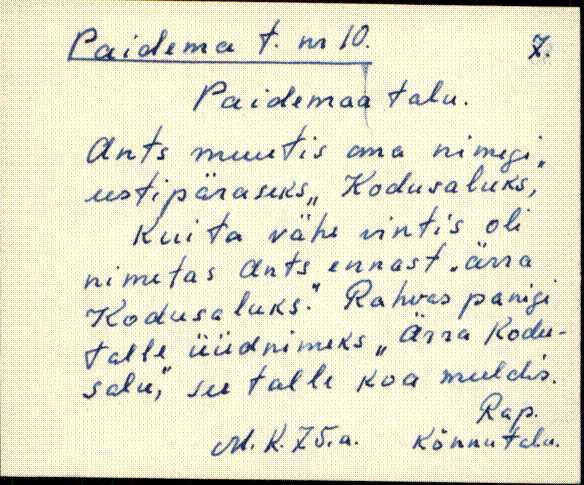 Paidema t. nr 10.
7.
Paidemaa talu.
Ants muutis oma nimegi„
eestipäraseks„ Kodusaluks,
Kui ta vähe vintis oli
nimetas Ants ennast „ärra
Kodusaluks." Rahvas panigi
talle üüdnimeks „Ärra Kodu-
salu," see talle koa meeldis.
Rap.
M. K. 75.a. Kõnnu talu.